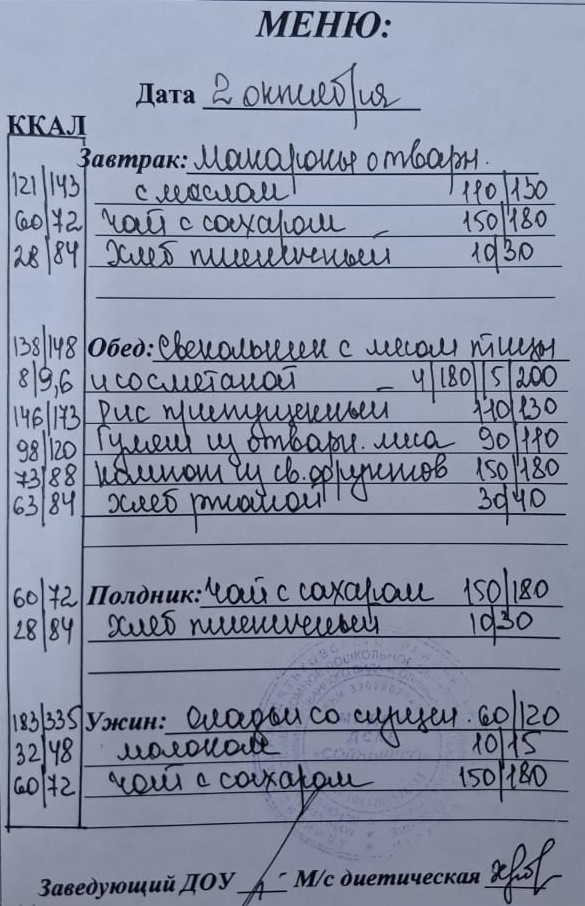 МЕНЮ:
Дата 2 октября
ККАЛ
Завтрак: Макароны отварн.
121/143 с маслом 110/130
60/72 Чай с сахаром 150/180
28/84 Хлеб пшеничный 10/30
138/148 Обед: Свекольник с мясом птицы
8/9,6 и со сметаной 4/180/5/200
146/173 Рис припущенный 110/130
98/120 Гуляш из отварн. мяса 90/110
73/88 Компот из св. фруктов 150/180
63/84 Хлеб ржаной 30/40
60/72 Полдник: Чай с сахаром 150/180
28/84 Хлеб пшеничный 10/30
183/335 Ужин: Оладьи со сгущен. 60/120
32/48 молоком 10/15
60/72 Чай с сахаром 150/180
Заведующий ДОУ М/с диетическая